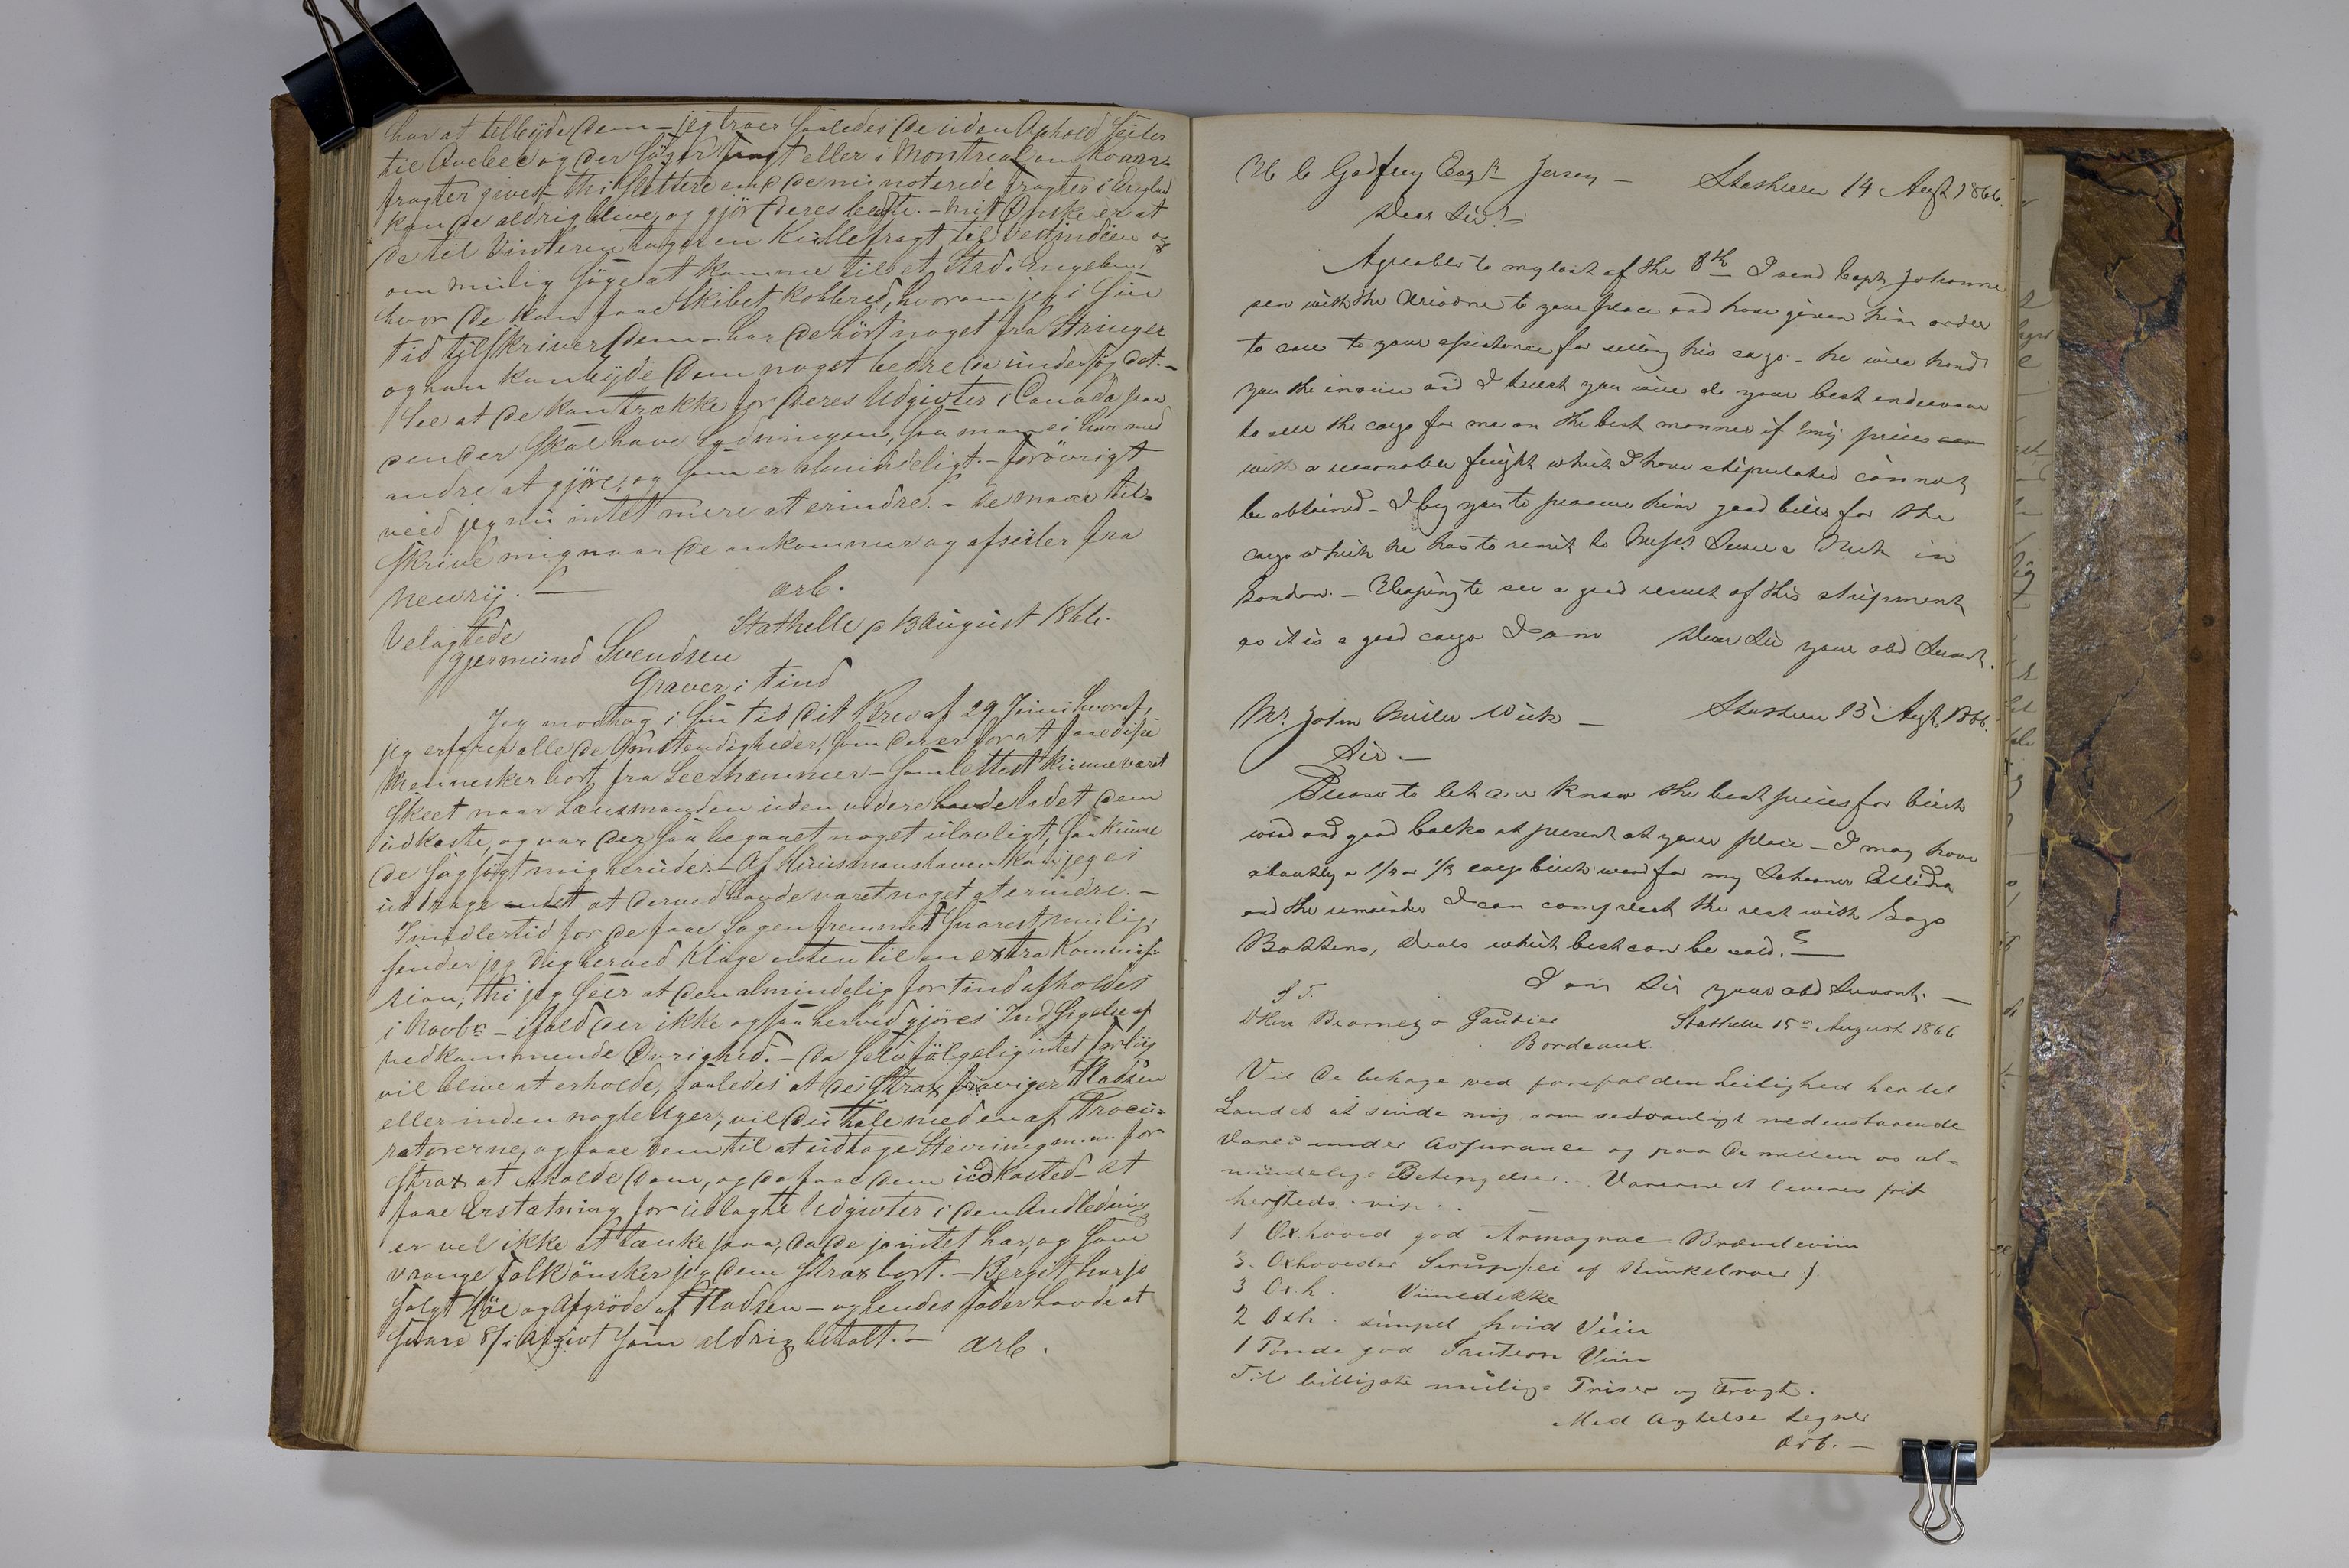 har at tilbÿde Dem – jeg troer saaledes De uden Ophold seiler
til Quebec og der søger fragt eller i Montreal om Korn-
fragter gives – thi slettere end de nu noterede fragter i England
kan de aldrig blive, og gjør Deres bedste. – mit Ønske er at
De til Vinteren tager en Kullefragt til Vestindien og
om mulig søge at komme til et Sted i Engeland
hvor De kan faae Skibet Kobbred, hvorom jeg i sin
tid tilskriver Dem – har De hørt noget fra Stringer
og han kan bÿde Dem noget bedre da undersøg det. –
See at De kan trække for Deres Udgivter i Canada paa
den der skal have Ladningen, saa man ei har med
andre at gjøre, og som er almindeligt. – forøvrigt
veed jeg nu intet mere at erindre. – De maae til-
skrive mig naar De ankommer og afseiler fra
Newrÿ. –
arb.
Stathelle p 13 August 1866.
Velagtede
Gjermund Svendsen
Graver i Tind
Jeg modtog i sin tid Dit Brev af 29 Juni hvoraf,
jeg erfarer alle de Omstendigheder, som der er for at faae disse
Mennesker bort fra Leerhammer – som lettest kunne været
skeet naar Lænsmanden uden videre havde ladet dem
udkaste, og var der saa begaaet noget ulovligt, saa kunne
de sagsøgt mig herude. – Af Huusmans kan jeg ei
uddrage at derved havde været noget at erindre. –
Imidlertid for de faae Sagen fremmet snarest mulig,
sender jeg Dig herved Klage enten til en extra Kommiss-
sion, thi jeg seer at den almindelig for tind afholdes
i Novbr – ifald der ikke ogsaa herved gjøres Indsigelse af
vedkommende Øvrighed. – Da selvfølgelig intet forliig
vil blive at erholde, saaledes at de strax fraviger Pladsen
eller inden nogle Uger, vil Du tale med en af Procu-
ratorerne, og faae dem til at udtage Stevning m.m. for
strax at erholde Dom, og da faae dem udkasted – At
faae Erstatning for udlagte Udgivter i den Andledning
er vel ikke at tænke paa, da de jo intet har, og som
vrange folk ønsker jeg dem strax bort. – Bergit har jo
solgt Høe og Afgrøde af Pladsen – og hendes fader havde at
svare 8/ i Afgivt som aldrig betalt. – arb.
H C Godfrey Esqr Jersey – Stathelle 14 Augt 1866.
Dear Sir! –
Agreable to my last of the 8th I send Capt Johanne
sen with the Ariadne to your place and have given him order
to call to your assistance for selling his cargo – he will hand
you the invoice and I trust you will do your best endeavour
to sell the cargo for me on the best manner if my prices can
with a reasonable freight which I have stipulated cannot
be obtained – I beg you to procure him good bills for the
cargo which he has to remit to Messrs in
London. – Hoping to see a good result of this shipment
as it is a good cargo I am Dear Sir your obd Servant.
Mr. John Miller Wick – Stathelle 15 Augt. 1866.
Sir. –
Please to let me know the best prices for birch
wood and good balks at present at your place – I may have
abouthly a 1/2 or 1/3 cargo birch wood for my Schooner Ellida
and the remainder I can complect the rest with Logs
Battens, deals which best can be sold. –
I am Sir your obd Servant. –
S T.
D'Hrr Bearnez & Gautier Stathelle 15de August 1866
Bordeaux.
Vil De behage ved forefalden Leilighed her til
Landet at sende mig som sedvanligt nedenstaaende
Varer under Assurance og paa De mellem os al-
mindelige Betingelser. – Varerne at leveres frit
hersteds. viz. .
1 Oxhoved god Armagnac Brændeviin
3. Oxhoveder Sirup (ei af Runkelroer)
3 Oxh. Viinedikke
2 Oxh. simpel hvid Viin
1 Tønde god Sautern Viin
Til billigste mulige Priser og Fragt.
Med Agtelse tegner
Arb. –